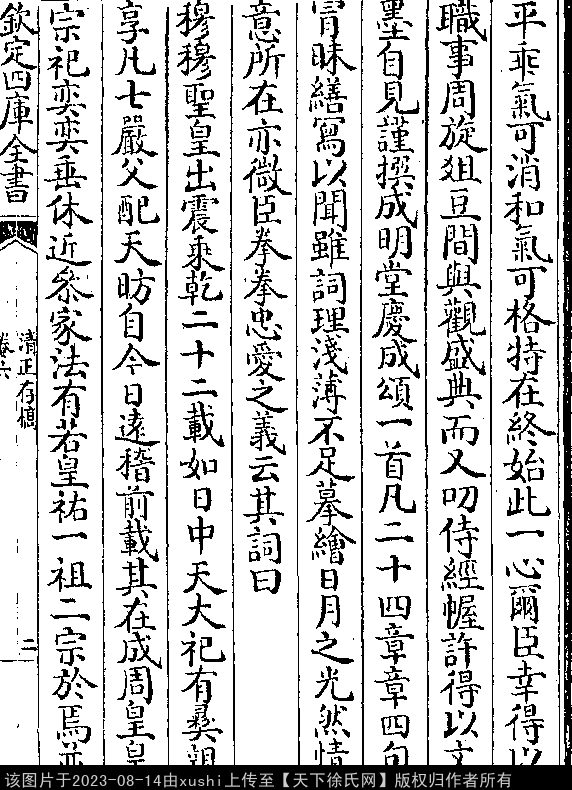 平乖氣可消和氣可格特在終始此一心爾臣幸得以
職事周旋俎豆間與觀盛典而又叨侍經幄許得以文
墨自見謹撰成明堂慶成頌一首凡二十四章章四句
冒昧繕寫以聞雖詞理淺薄不足摹繪日月之光然惓
意所在亦微臣拳拳忠愛之義云其詞曰
穆穆聖皇出震乘乾二十二載如日中天大祀有彝親
享凡七嚴父配天昉自今日遠稽前載其在成周皇皇
宗祀奕奕垂休近參家法有若皇祐一祖二宗於焉並
欽定四庫全書
清正存稿
卷六
二
该图片于2023-08-14由xushi上传至【天下徐氏网】版权归作者所有